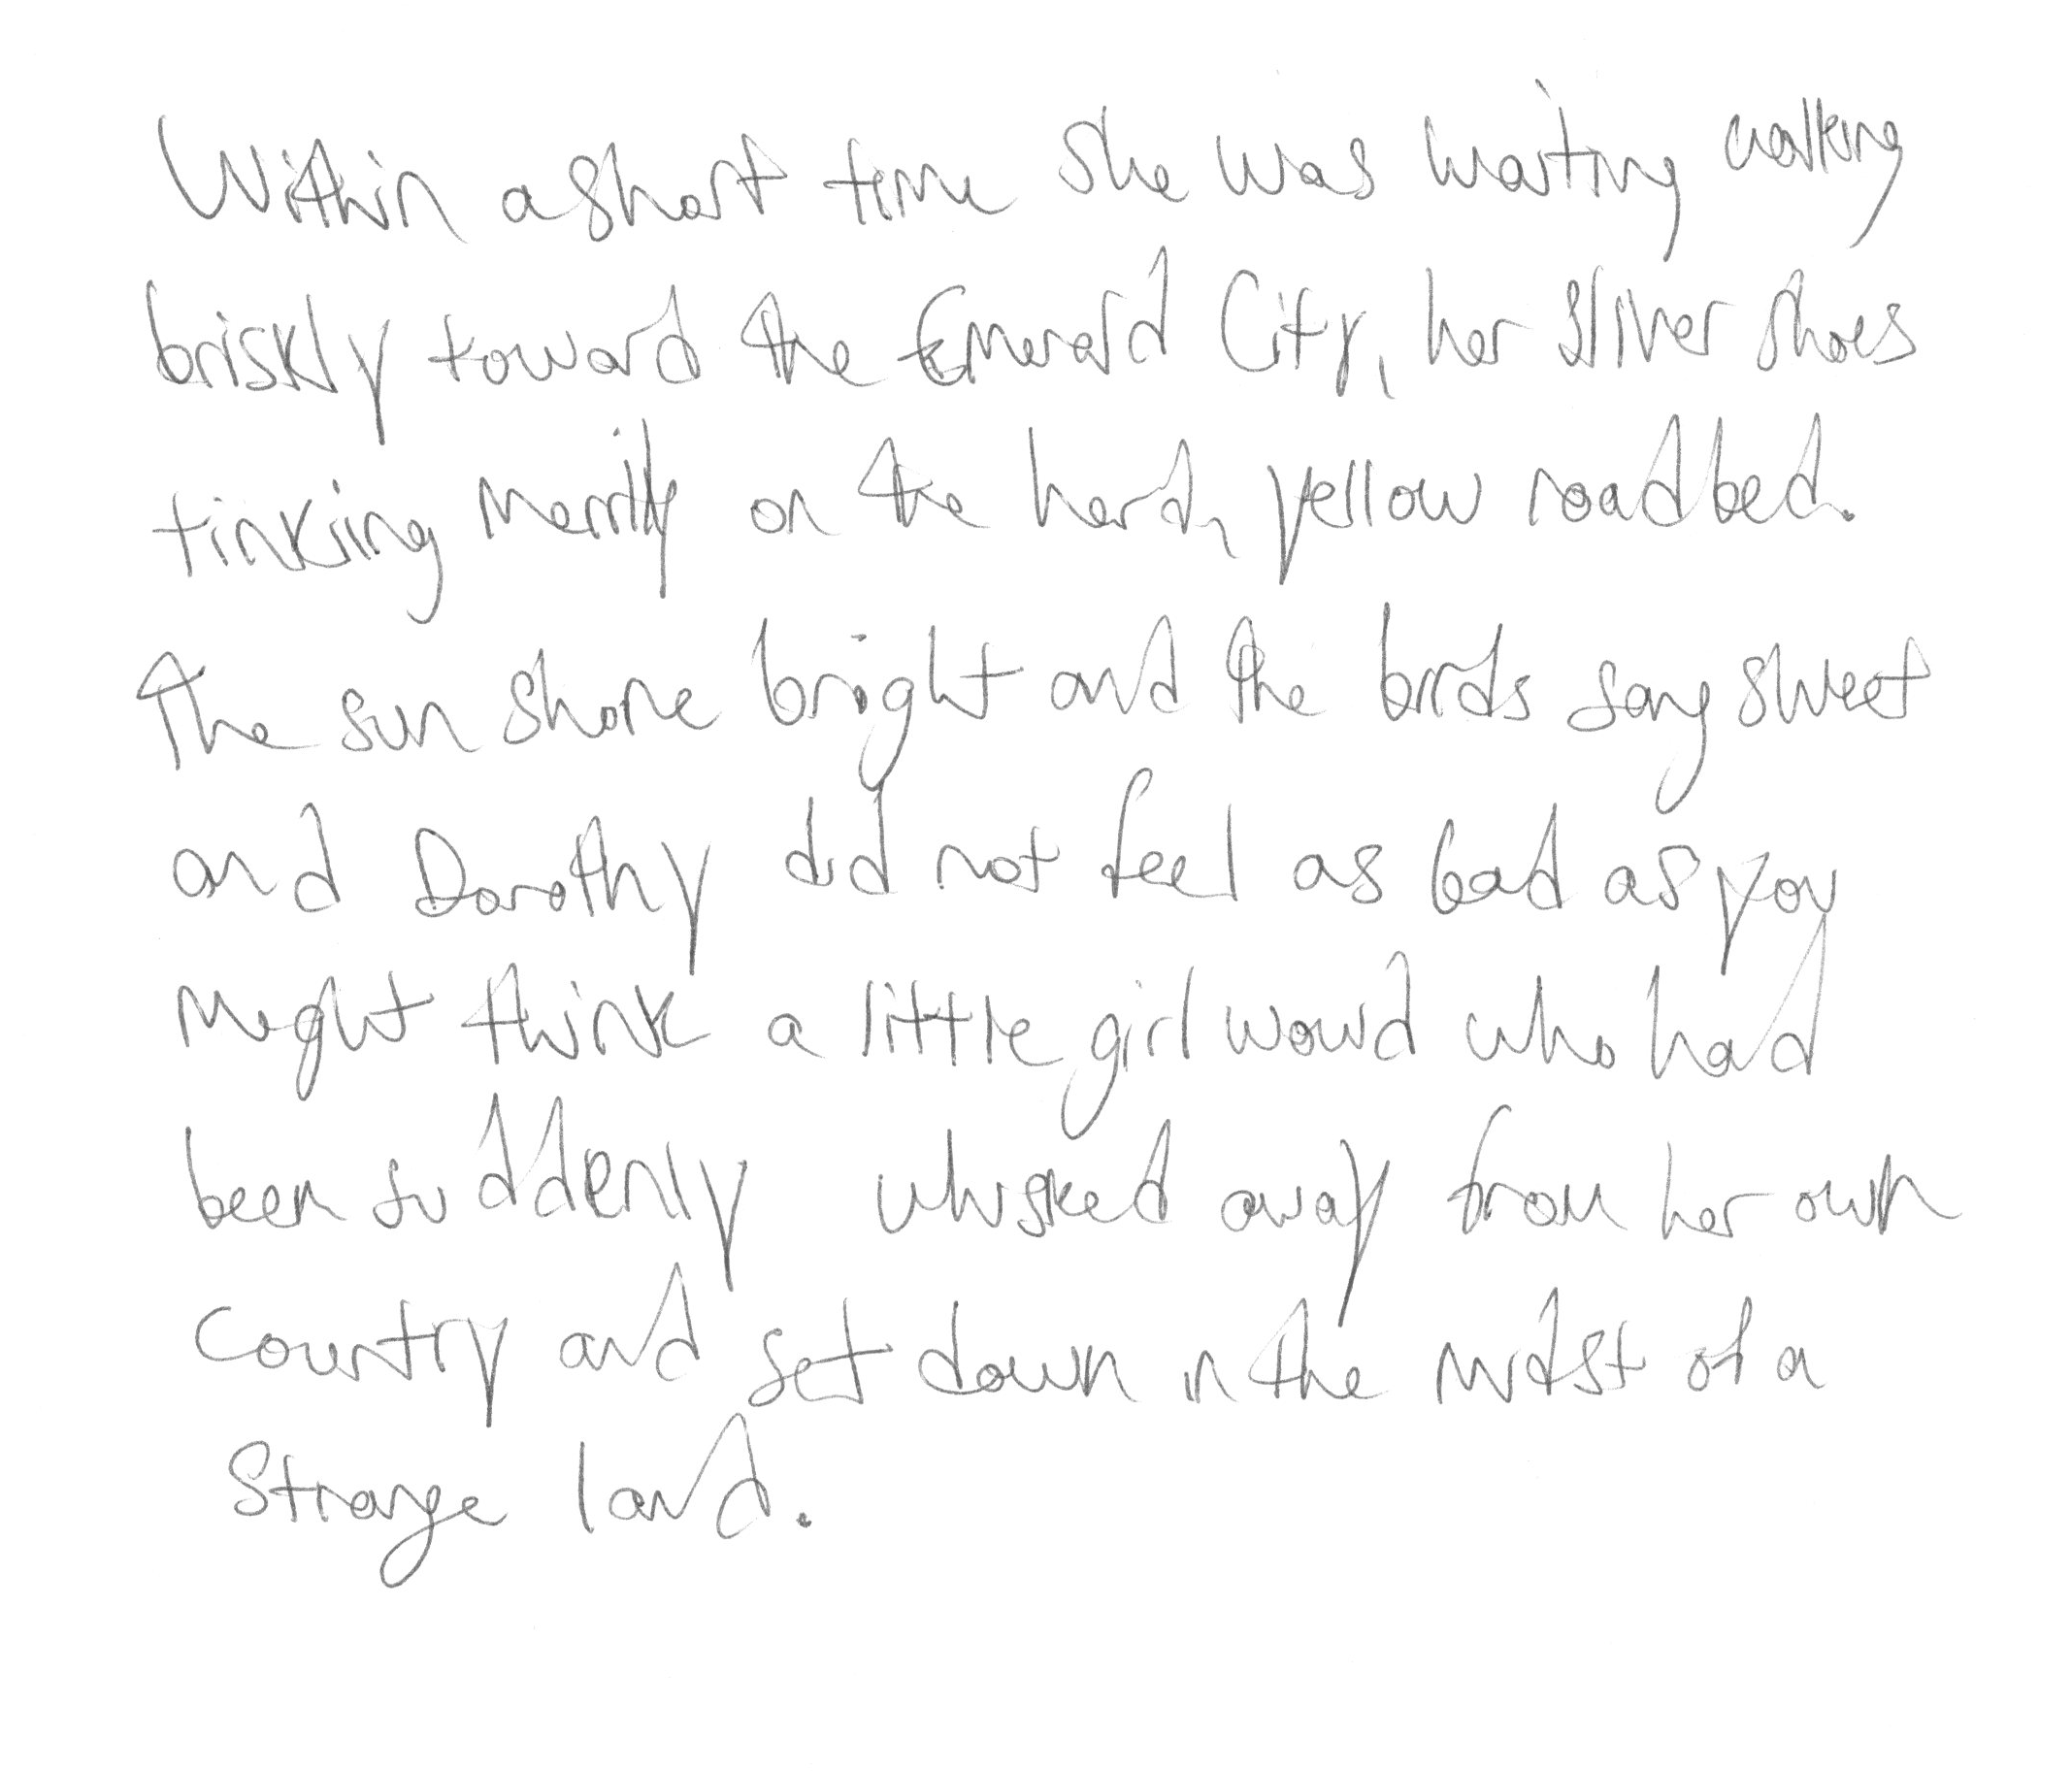 Within a short time she was waiting walking
briskly toward the Emerald City, her sliver shoes
tinkiing merrily on the hard, yellow roadbed.
The sun shone bright and the birds sang sweet
and Dorothy did not feel as bad as you
might think a little girl would who had
been suddenly whisked away from her own
country and set down in the midst of a
strange land.